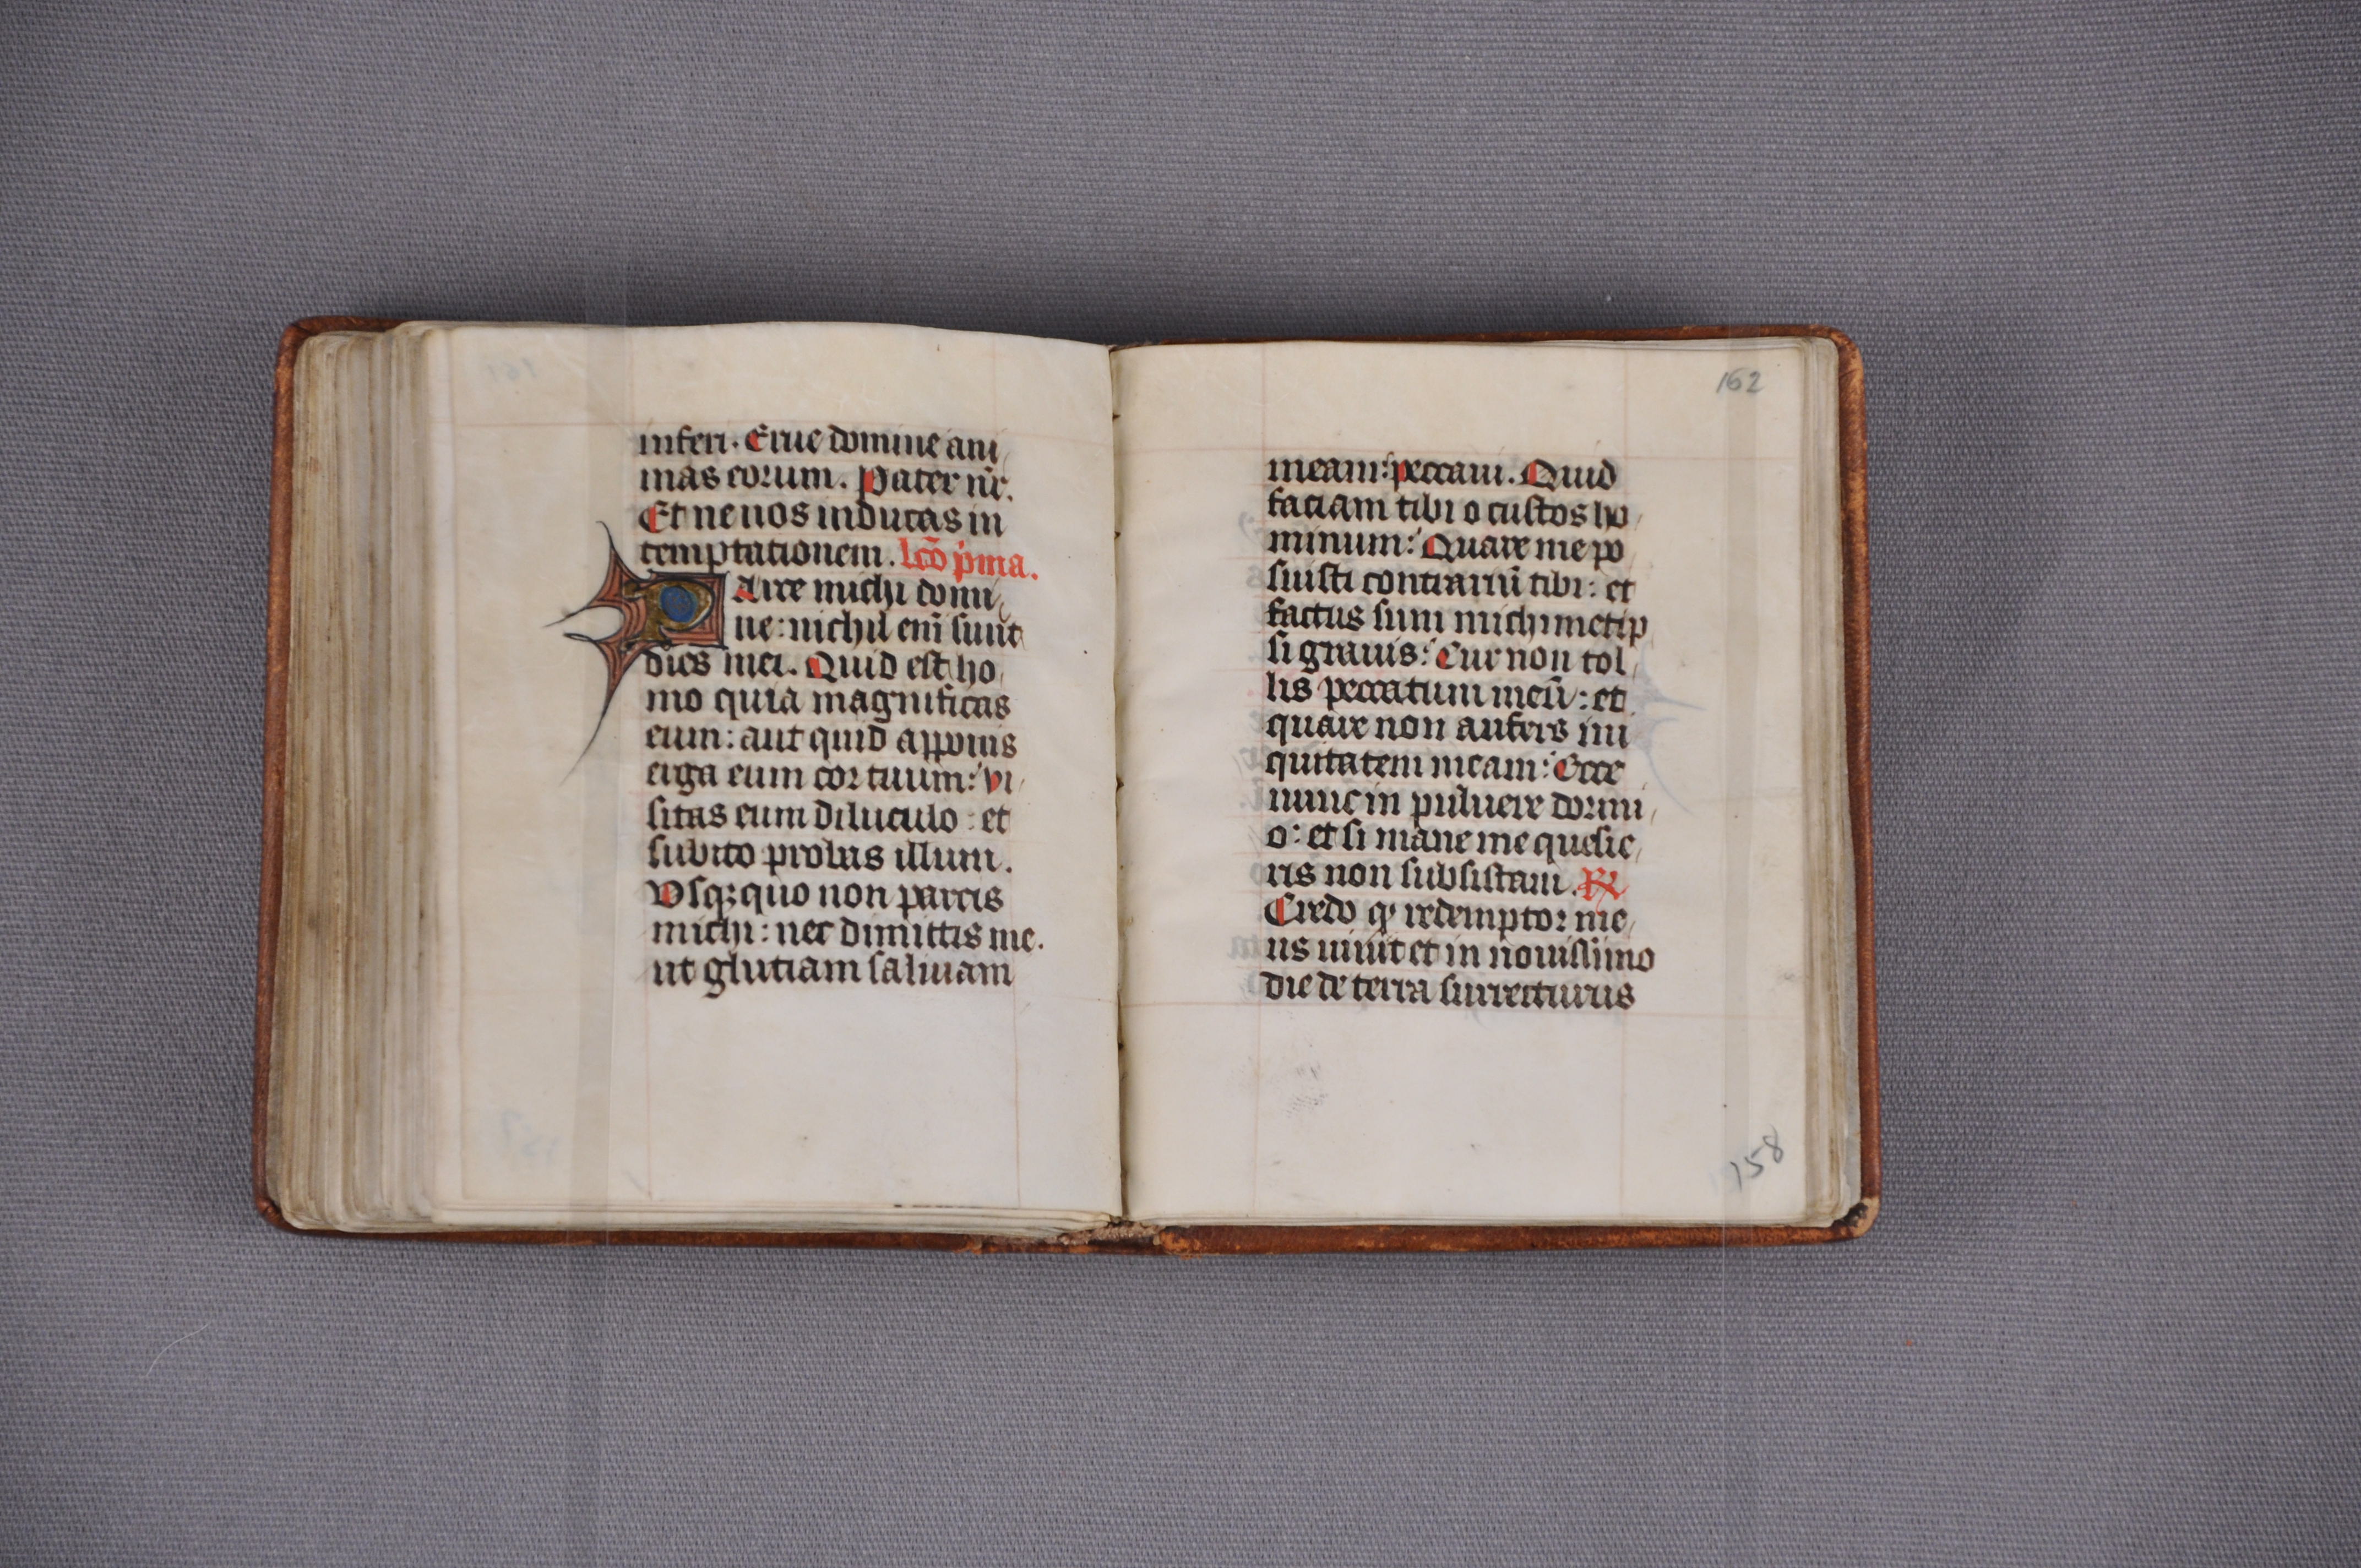 inferi. Erue domine ani
mas eorum. Pater nr̄.
Et ne nos inducas in
temptationem. lcō pⁱma.
PArce michi domi
ne: nichil eni᷈ sunt
dies mei. Quid est ho
mo quia magnificas
eum: aut quid apponis
erga eum cor tuum: vi
sitas eum diluculo: et
subito probas illum.
Vsqꝫquo non parcis
michi: nec dimittis me.
ut glutiam saliuam
162
meam: peccaui. Quid
faciam tibi o custos ho
minum: Quare me po
suisti contrariū tibi: et
factus sum michimetip
si grauis: Cur non tol
lis peccatum meū: et
quare non aufers ini
quitatem meam: Ecce
nunc in puluere dormi
o: et si mane me quesie
ris non subsistam. ℟
Credo qꝫ redemptor me
us uiuit et in nouissimo
die de terra surrecturus
158